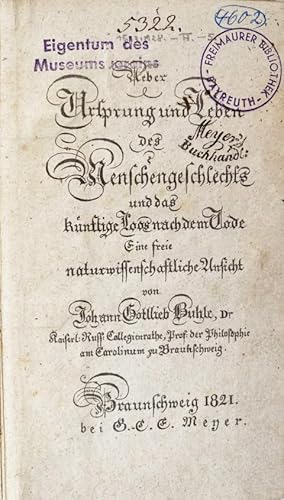 5322.
4602
Eigentum des
Museums
FREIMAURER BIBLIOTHEK
BAYREUTH
Ueber
Ursprung und Leben
des
Meyer
Buchhandl:
Menschengeschlechts
und das
künftige Loos nach dem Tode
Eine freie
naturwissenschaftliche Ansicht
von
Johann Gottlieb Buhle, Dr
Kaiserl: Russ: Collegienrathe, Prof. der Philosophie
am Carolinum zu Braunschweig.
Braunschweig 1821.
bei G. C. E. Meyer.